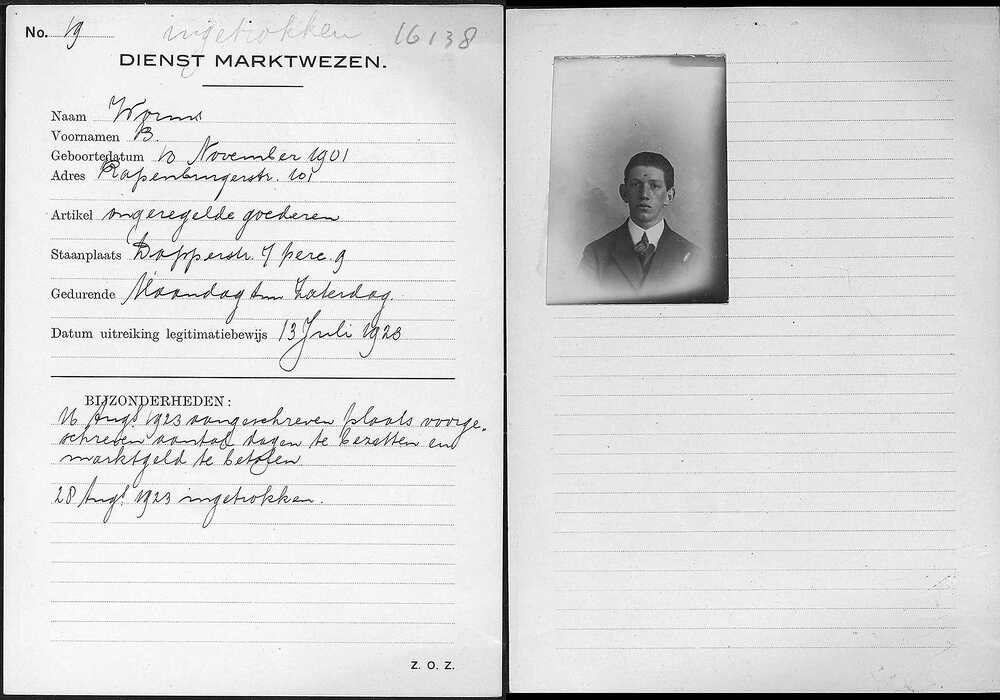 No. 19 ingetrokken 16138
DIENST MARKTWEZEN.
Naam Worms
Voornamen B.
Geboortedatum 10 November 1901
Adres Rapenburgerstr. 101
Artikel ongeregelde goederen
Staanplaats Dapperstr. 7 perc. 9
Gedurende Maandag t/m Zaterdag.
Datum uitreiking legitimatiebewijs 13 Juli 1923
BIJZONDERHEDEN:
16 Augs. 1923 aangeschreven plaats voorge-
schreven aantal dagen te bezetten en
marktgeld te betalen
28 Augs. 1923 ingetrokken.
Z. O. Z.